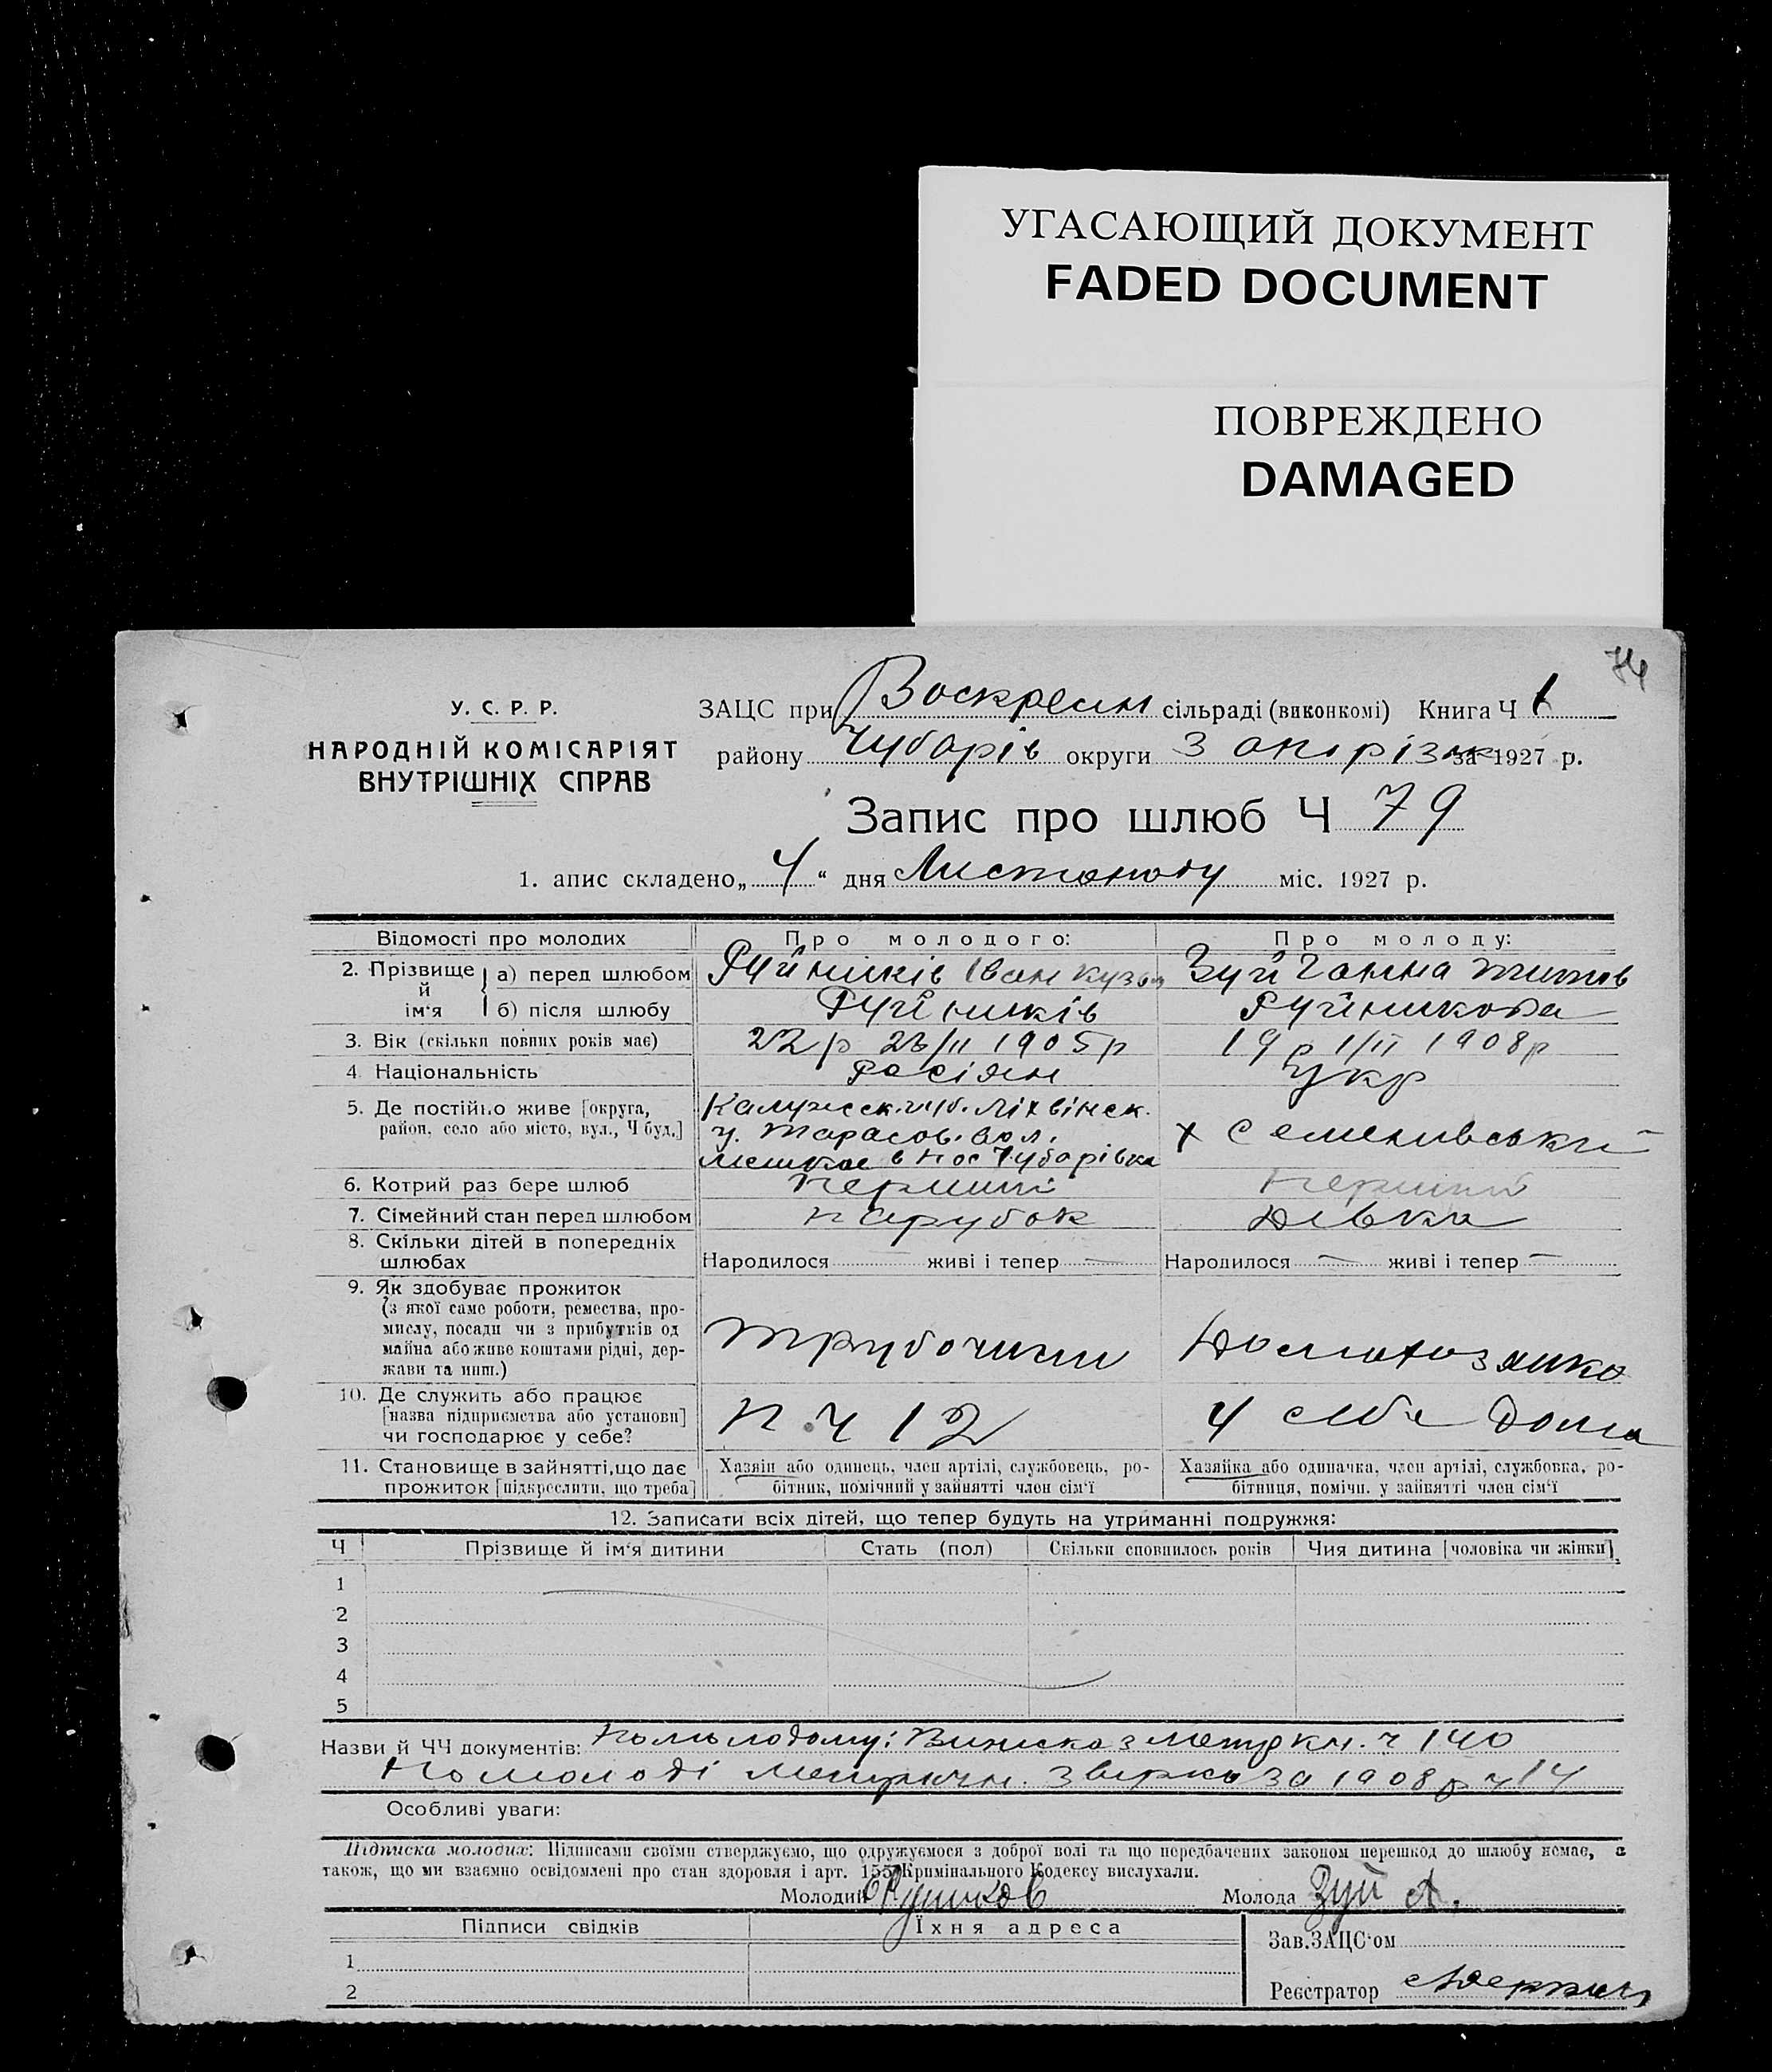 УГАСАЮЩИЙ ДОКУМЕНТ
FADED DOCUMENT
ПОВРЕЖДЕНО
DAMAGED
74
У. С. Р. Р.
НАРОДНІЙ КОМІСАРІЯТ
ВНУТРІШНІХ СПРАВ
ЗАЦС при Воскресин сільраді (виконкомі) Книга Ч 1
району Чубарів округи Запорізьк за 1927 р.
Запис про шлюб Ч 79
1. апис складено „ 4 “ дня Листопаду міс. 1927 р.
Відомості про молодих Про молодого: Про молоду:
2. Прізвище й ім'я а) перед шлюбом Руйників Іван Кузьм Зуй Ганна Тимов
б) після шлюбу Руйників Руйникова
3. Вік (скільки повних років має) 22 р 23/II 1905 р 19 р 1/II 1908 р
4 Національність Росіян Укр
5. Де постійно живе [округа, район, село або місто, вул., Ч буд.]
Калужск. губ. Ліхвінск.
у. Тарасов. вол.
мешкає в пос Чубарівка
х Семенивський
6. Котрий раз бере шлюб Перший Перший
7. Сімейний стан перед шлюбом парубок Дівка
8. Скільки дітей в попередніх шлюбах Народилося живі і тепер Народилося живі і тепер
9. Як здобуває прожиток
(з якої саме роботи, ремества, про-
мислу, посади чи з прибутків од
майна або живе коштами рідні, дер-
жави та инш.)
трубочист Домохозяйка
10. Де служить або працює
[назва підприємства або установи]
чи господарює у себе?
П.Ч 12 у себе дома
11. Становище в зайнятті, що дає
прожиток [підкреслити, що треба]
Хазяїн або одинець, член артілі, службовець, ро-
бітник, помічний у зайнятті член сім'ї
Хазяйка або одиначка, член артілі, службовка, ро-
бітниця, помічн. у зайнятті член сім'ї
12. Записати всіх дітей, що тепер будуть на утриманні подружжя:
Ч Прізвище й ім'я дитини Стать (пол) Скільки сповнилось років Чия дитина [чоловіка чи жінки]
1
2
3
4
5
Назви й ЧЧ документів: По молодому: Виписка з метр кн. ч 140
По молоді метричн. за 1908 р ч 14
Особливі уваги:
Підписка молодих: Підписами своїми стверджуємо, що одружуємося з доброї волі та що передбачених законом перешкод до шлюбу немає, а
також, що ми взаємно освідомлені про стан здоровля і арт. 155 Кримінального Кодексу вислухали.
Молодий Молода Зуй А.
Підписи свідків Їхня адреса
1
2
Зав.ЗАЦС'ом
Реєстратор